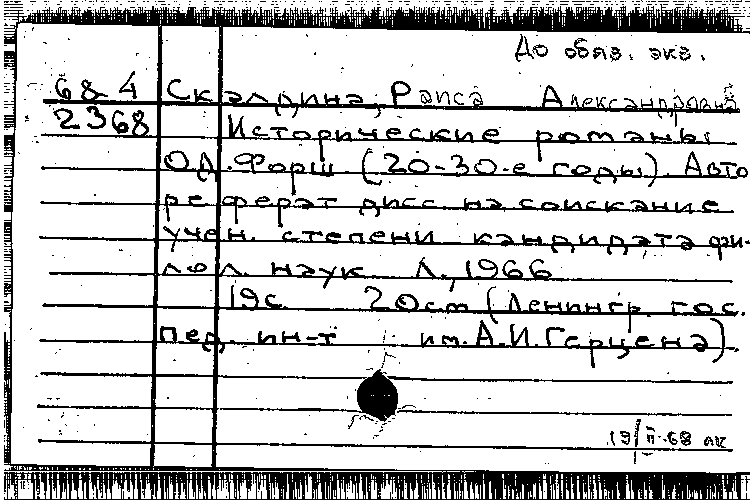 До обяз. экз.
68-4 Скалдина, Раиса Александровна
2368 Исторические романы
О.Д. Форш (20-30-е годы). Авто
реферат дисс. на соискание
учен. степени кандидата фи-
лол. наук. Л., 1966
19с. 20см (Ленингр. гос.
пед. ин-т им. А.И. Герцена).
19/II-68 лк